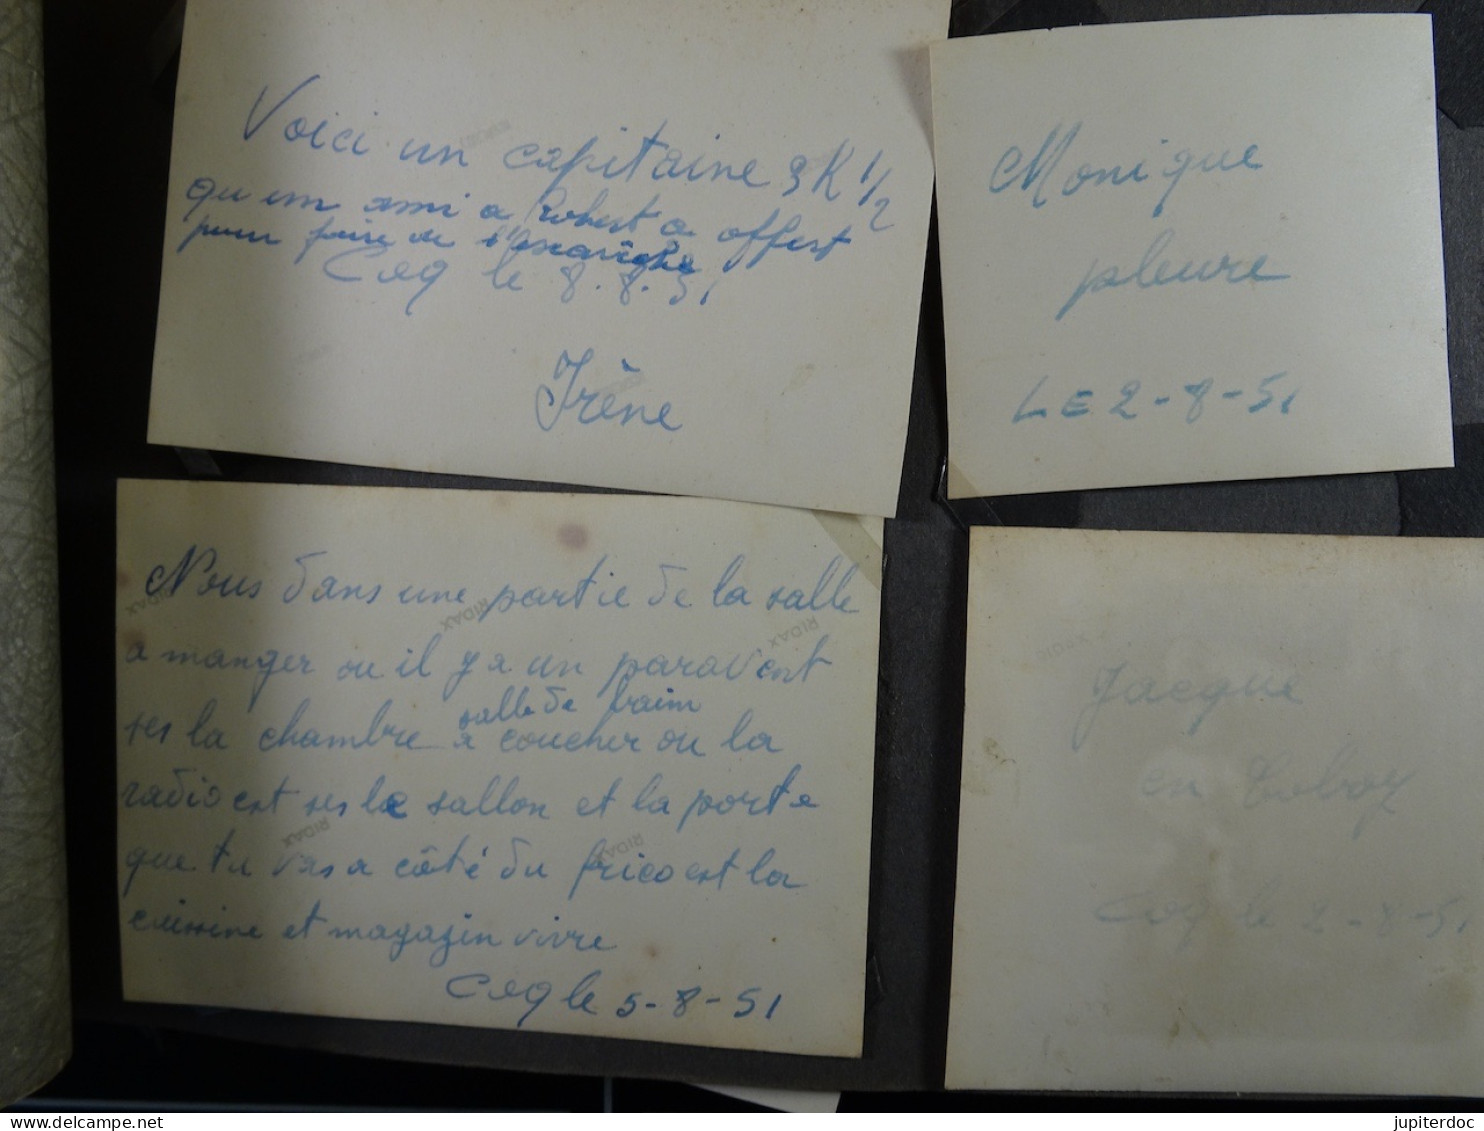 Voici un capitaine 3K 1/2
qu un ami a Robert a offert
pour faire de l'escavêche
Coq le 8.8.51
Irène
Monique
pleure
LE 2-8-51
Nous dans une partie de la salle
a manger ou il y a un paravent
ses la chambre a coucher ou la
salle de baim
radio est ses le sallon et la porte
que tu vas a côté du frico est la
cuissine et magazin vivre
Coq le 5-8-51
Jacque
en Coboy
Coq le 2-8-51
RIDAX
RIDAX
RIDAX
RIDAX
RIDAX
jupiterdoc